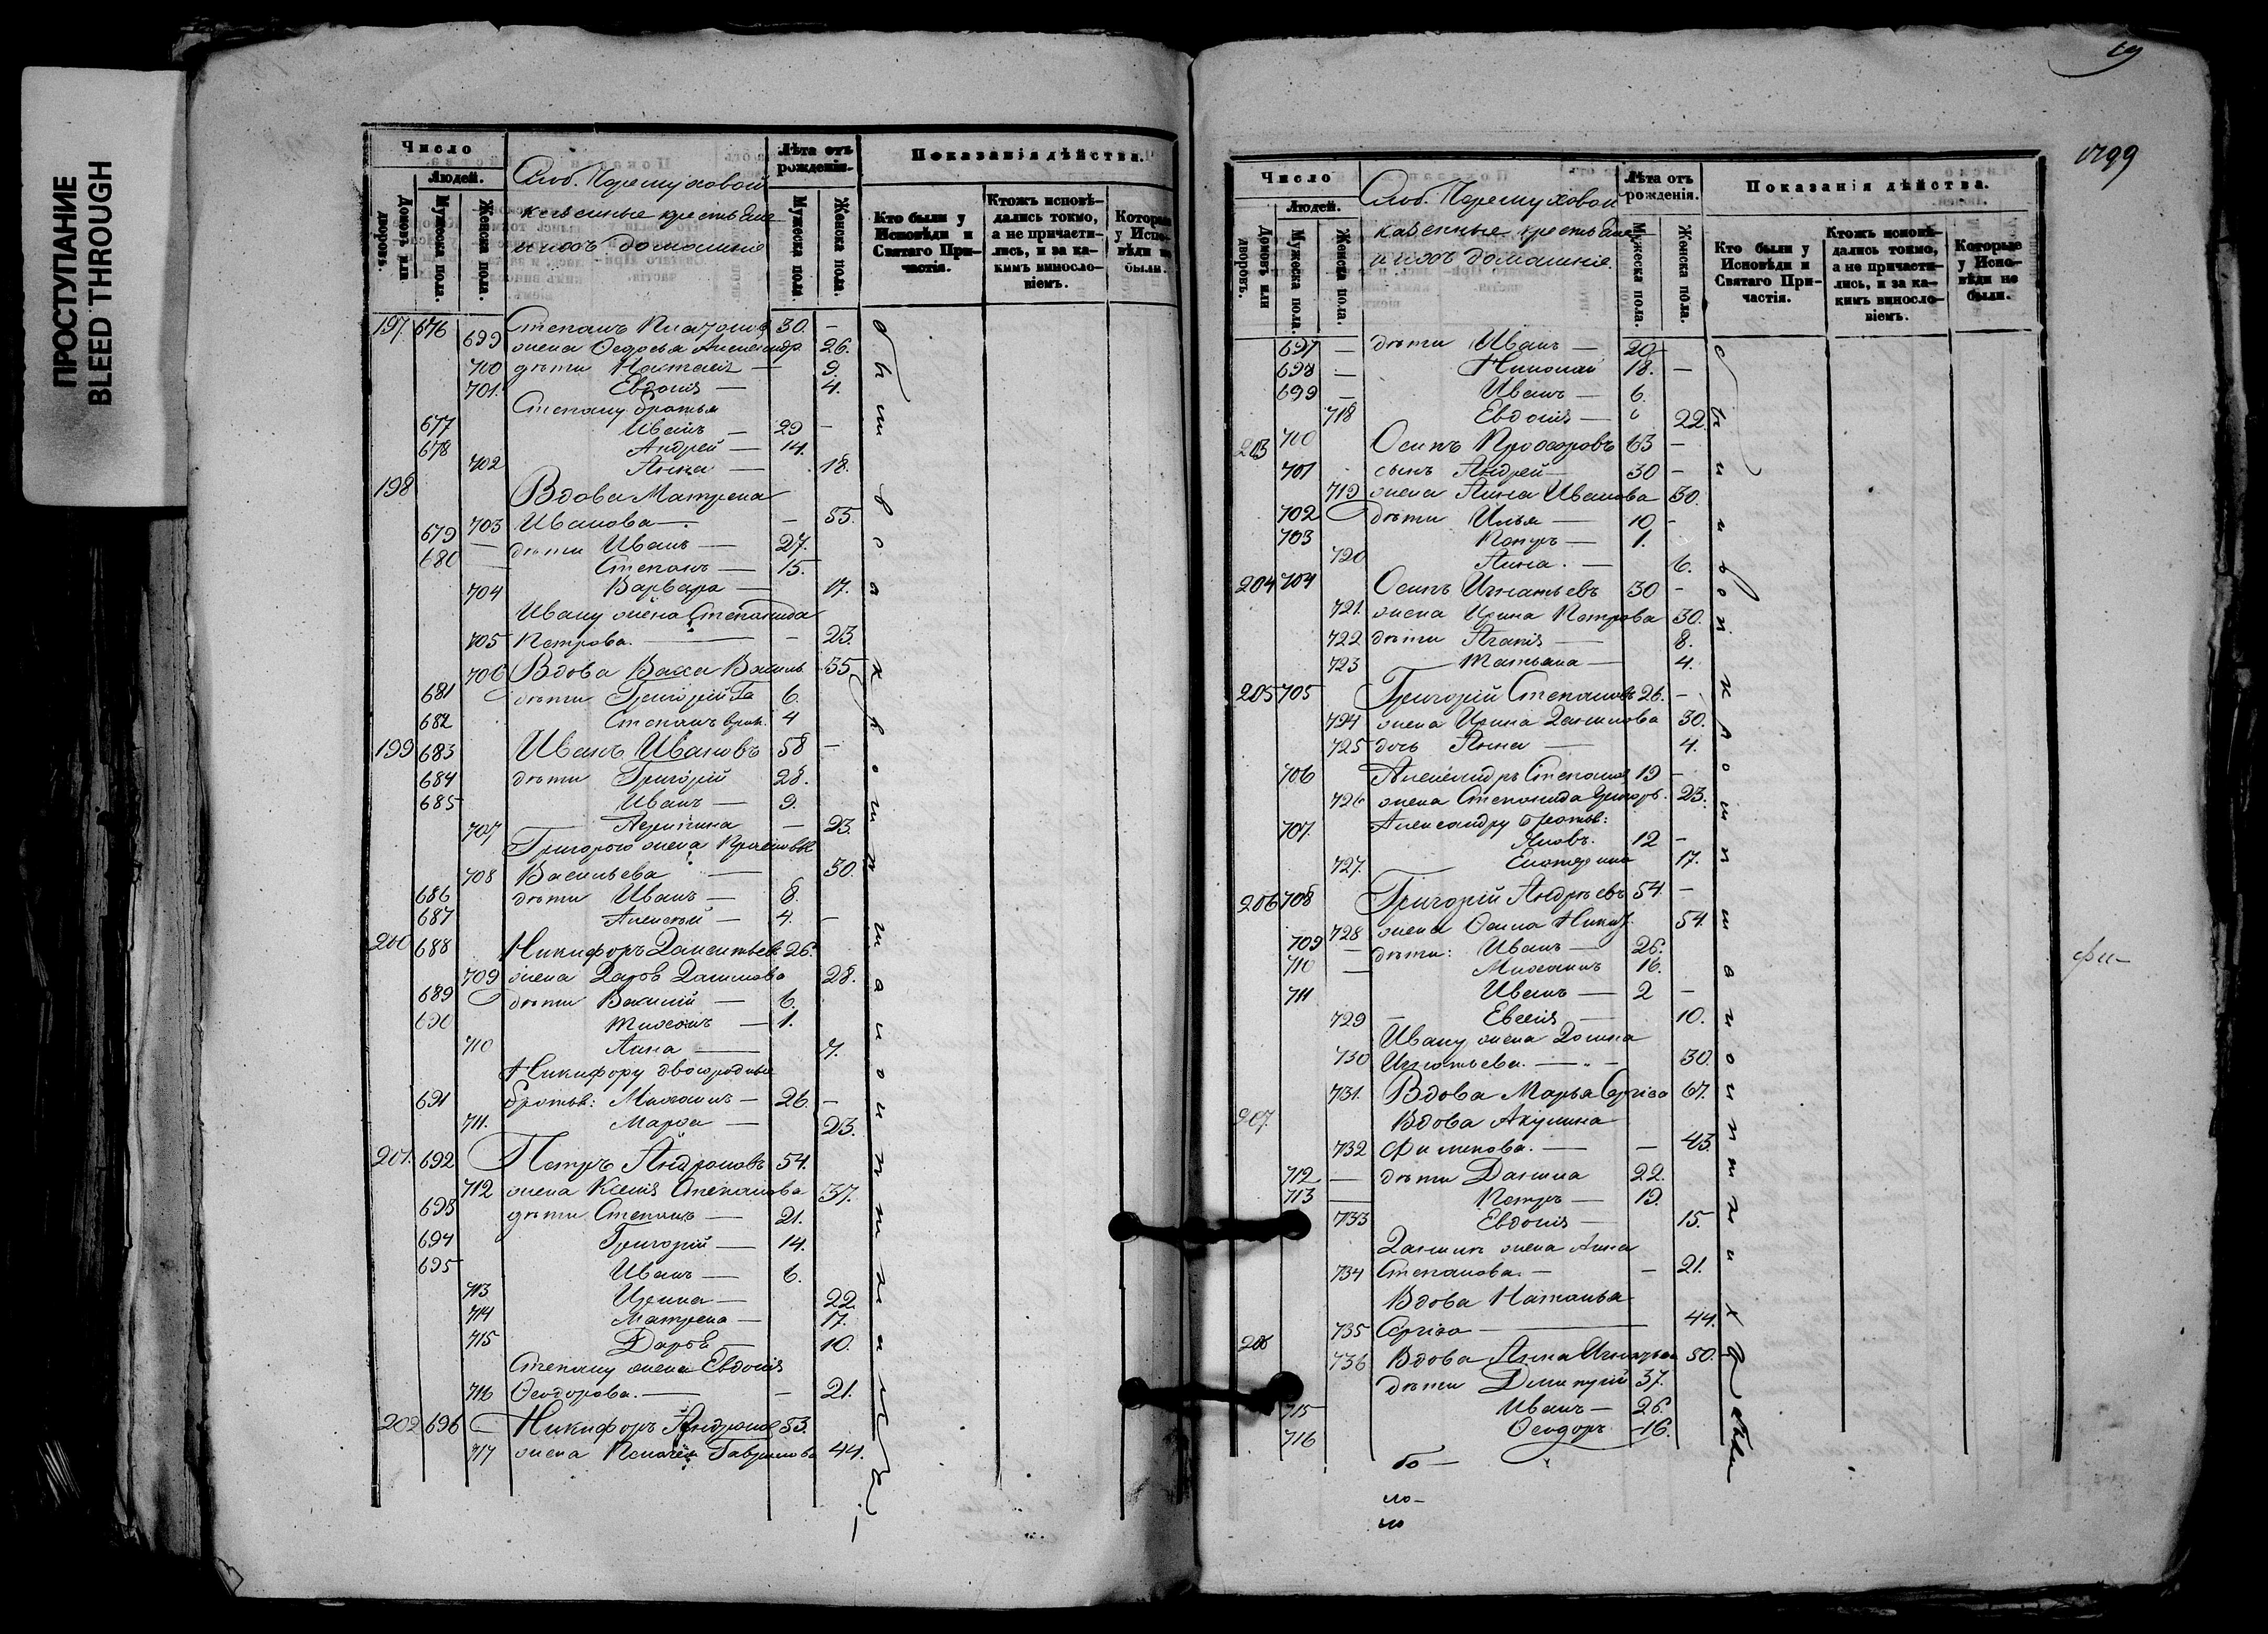 ПРОСТУПАНИЕ
BLEED THROUGH
Число
Людей.
Домовъ или дворовъ.
Мужеска пола.
Женска пола.
Слоб. Черемуховой
казенные крестьяне
и ихъ домашніе
Лѣта отъ рожденія.
Мужеска пола.
Женска пола.
Показанія дѣйства.
Кто были у Исповѣди и Святаго Причастія.
Ктожъ исповѣдались токмо, а не причастились, и за какимъ винословіемъ.
Которые у Исповѣди не были.
197. 676 Степанъ 30. –
699 жена Ѳедосья Александр. 26.
700 дѣти Наталія — 9.
701. Евдокія — 4.
Степану братья
677 Иванъ — 29 –
678 Андрей — 14.
702 Анна — 18.
198 Вдова Матрена
703 Иванова — – 55.
679 — дѣти Иванъ — 27.
680 — Степанъ — 15.
704 Варвара — 17.
Ивану жена Степанида
705 Петрова. — – 23.
706 Вдова Васса Василь. 55
681 дѣти Григорій 6.
682 Степанъ 4
199 683 Иванъ Ивановъ 58 –
684 дѣти Григорій 28.
685 Иванъ — 9.
707 – 23.
Григорію жена
708 Васильева — 30.
686 дѣти Иванъ — 8.
687 Алексѣй — 4. –
200 688 Никифоръ 26.
709 жена Дарья Данилова 28.
689 дѣти Василій — 6.
690 Михаилъ — 1.
710 Анна — 7.
Никифору двоюродные
691 братья: Михаилъ — 26. –
711. Марѳа — 23.
201. 692 Петръ Андроновъ 54.
712 жена Ксенія Степанова 37.
693 дѣти Степанъ — 21.
694 Григорій — 14.
695 Иванъ — 6.
713 Ирина — 22
714 Матрена — 17.
715 Дарья — 10.
Степану жена Евдокія
716 Ѳеодорова. — – 21.
202 696 Никифоръ Андронов 53.
717 жена Пелагея Гаврилова 44.
69
1799
Число
Людей.
Домовъ или дворовъ.
Мужеска пола.
Женска пола.
Слоб. Черемуховой
казенные крестьяне
и ихъ домашніе.
Лѣта отъ рожденія.
Мужеска пола.
Женска пола.
Показанія дѣйства.
Кто были у Исповѣди и Святаго Причастія.
Ктожъ исповѣдались токмо, а не причастились, и за какимъ винословіемъ.
Которые у Исповѣди не были.
697 — дѣти Иванъ — 20
698 — Николай 18. —
699 — Иванъ — 6.
718 Евдокія — 22.
203 700 Осипъ Прохоровъ 63 –
701 сынъ Андрей — 30 –
719 жена Анна Иванова 30.
702 дѣти Илья — 10 –
703 Петръ — 1.
720 Анна. — 6.
204 704 Осипъ Игнатьевъ 30 –
721. жена Ирина Петрова 30.
722 дѣти Агафія — 8.
723 Татьяна — 4.
205 705 Григорій Степановъ 26. –
724 жена Ирина Данилова 30.
725 дочь Анна — 4.
706 Александръ Степанов 19 –
726 жена Степанида Григорь. 23.
707. Александру братья:
Яковъ. 12 –
727. Екатерина 17.
206 708 Григорій Андрѣевъ 54. –
728 жена Никит. 54.
709 — дѣти: Иванъ — 26.
710 — Михаилъ 16.
711 Иванъ — 2 –
729 Евгенія — 10.
Ивану жена Домна
730 Игнатьева. — 30.
731. Вдова Марья 67.
207. Вдова Акулина
732 Филипова. — – 43.
712 — дѣти Данила 22.
713 — Петръ — 19.
733 Евдокія — 15.
Данилы жена Анна
734 Степанова. — – 21.
Вдова Наталья
735 44.
736 Вдова Анна 50.
дѣти Дмитрій 37.
715 Иванъ — 26.
716 Ѳеодоръ 16.